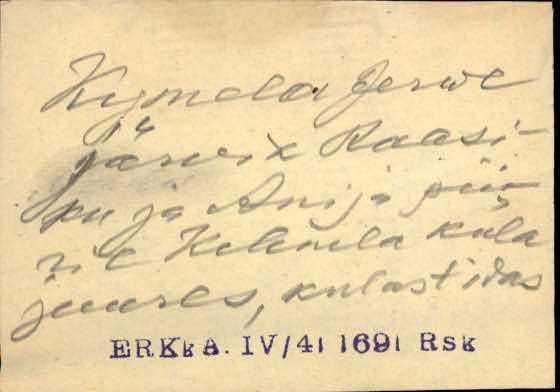 Kynnela Jerwe
järwix Raasi-
ku ja Anija pii-
ril Kelmla küla
juures, külast idas
ERKkA. IV/41 1691 Rsk